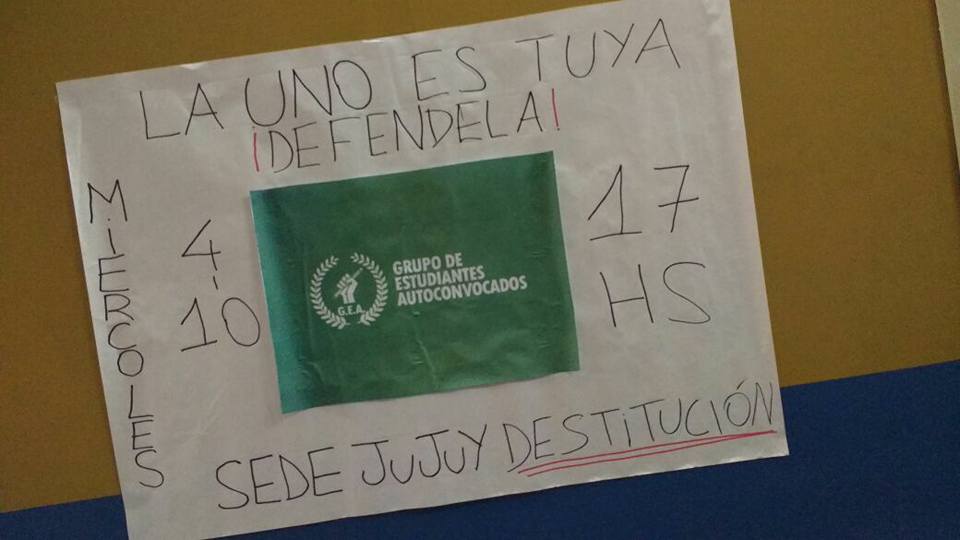 LA UNO ES TUYA
¡DEFENDELA!
MiERCOLES
4-10
GRUPO DE
ESTUDIANTES
AUTOCONVOCADOS
G.E.A.
17
HS
SEDE JUJUY DESTiTUCIÓN